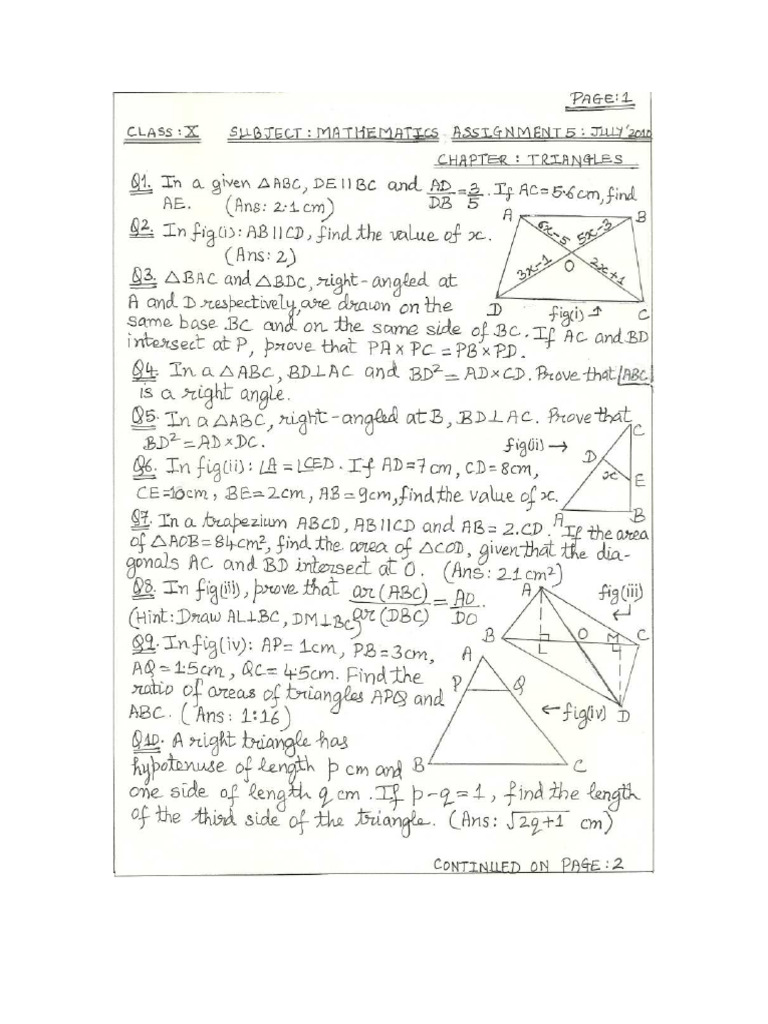 PAGE:1
CLASS: X SUBJECT: MATHEMATICS ASSIGNMENT 5: JULY'2010
CHAPTER: TRIANGLES
Q1. In a given △ABC, DE||BC and AD/DB = 3/5. If AC=5.6cm, find
AE. (Ans: 2.1cm)
Q2. In fig(i): AB||CD, find the value of x.
(Ans: 2)
A B
6x-5 5x-3
3x-1 O 2x+1
D C
fig(i)→
Q3. △BAC and △BDC, right-angled at
A and D respectively, are drawn on the
same base BC and on the same side of BC. If AC and BD
intersect at P, prove that PA×PC = PB×PD.
Q4. In a △ABC, BD⊥AC and BD² = AD×CD. Prove that ∠ABC
is a right angle.
Q5. In a △ABC, right-angled at B, BD⊥AC. Prove that
BD² = AD×DC.
fig(ii)→
C
D
x E
A B
Q6. In fig(ii): ∠A = ∠CED. If AD=7cm, CD=8cm,
CE=10cm, BE=2cm, AB=9cm, find the value of x.
Q7. In a trapezium ABCD, AB||CD and AB = 2.CD. If the area
of △AOB=84cm², find the area of △COD, given that the dia-
gonals AC and BD intersect at O. (Ans: 21cm²)
Q8. In fig(iii), prove that ar(ABC)/ar(DBC) = AO/DO.
(Hint: Draw AL⊥BC, DM⊥BC)
A fig(iii)
B L O M C
D
Q9. In fig(iv): AP=1cm, PB=3cm,
AQ=1.5cm, QC=4.5cm. Find the
ratio of areas of triangles APQ and
ABC. (Ans: 1:16)
A
P Q
←fig(iv)
B C
Q10. A right triangle has
hypotenuse of length p cm and
one side of length q cm. If p-q=1, find the length
of the third side of the triangle. (Ans: √2q+1 cm)
CONTINUED ON PAGE:2